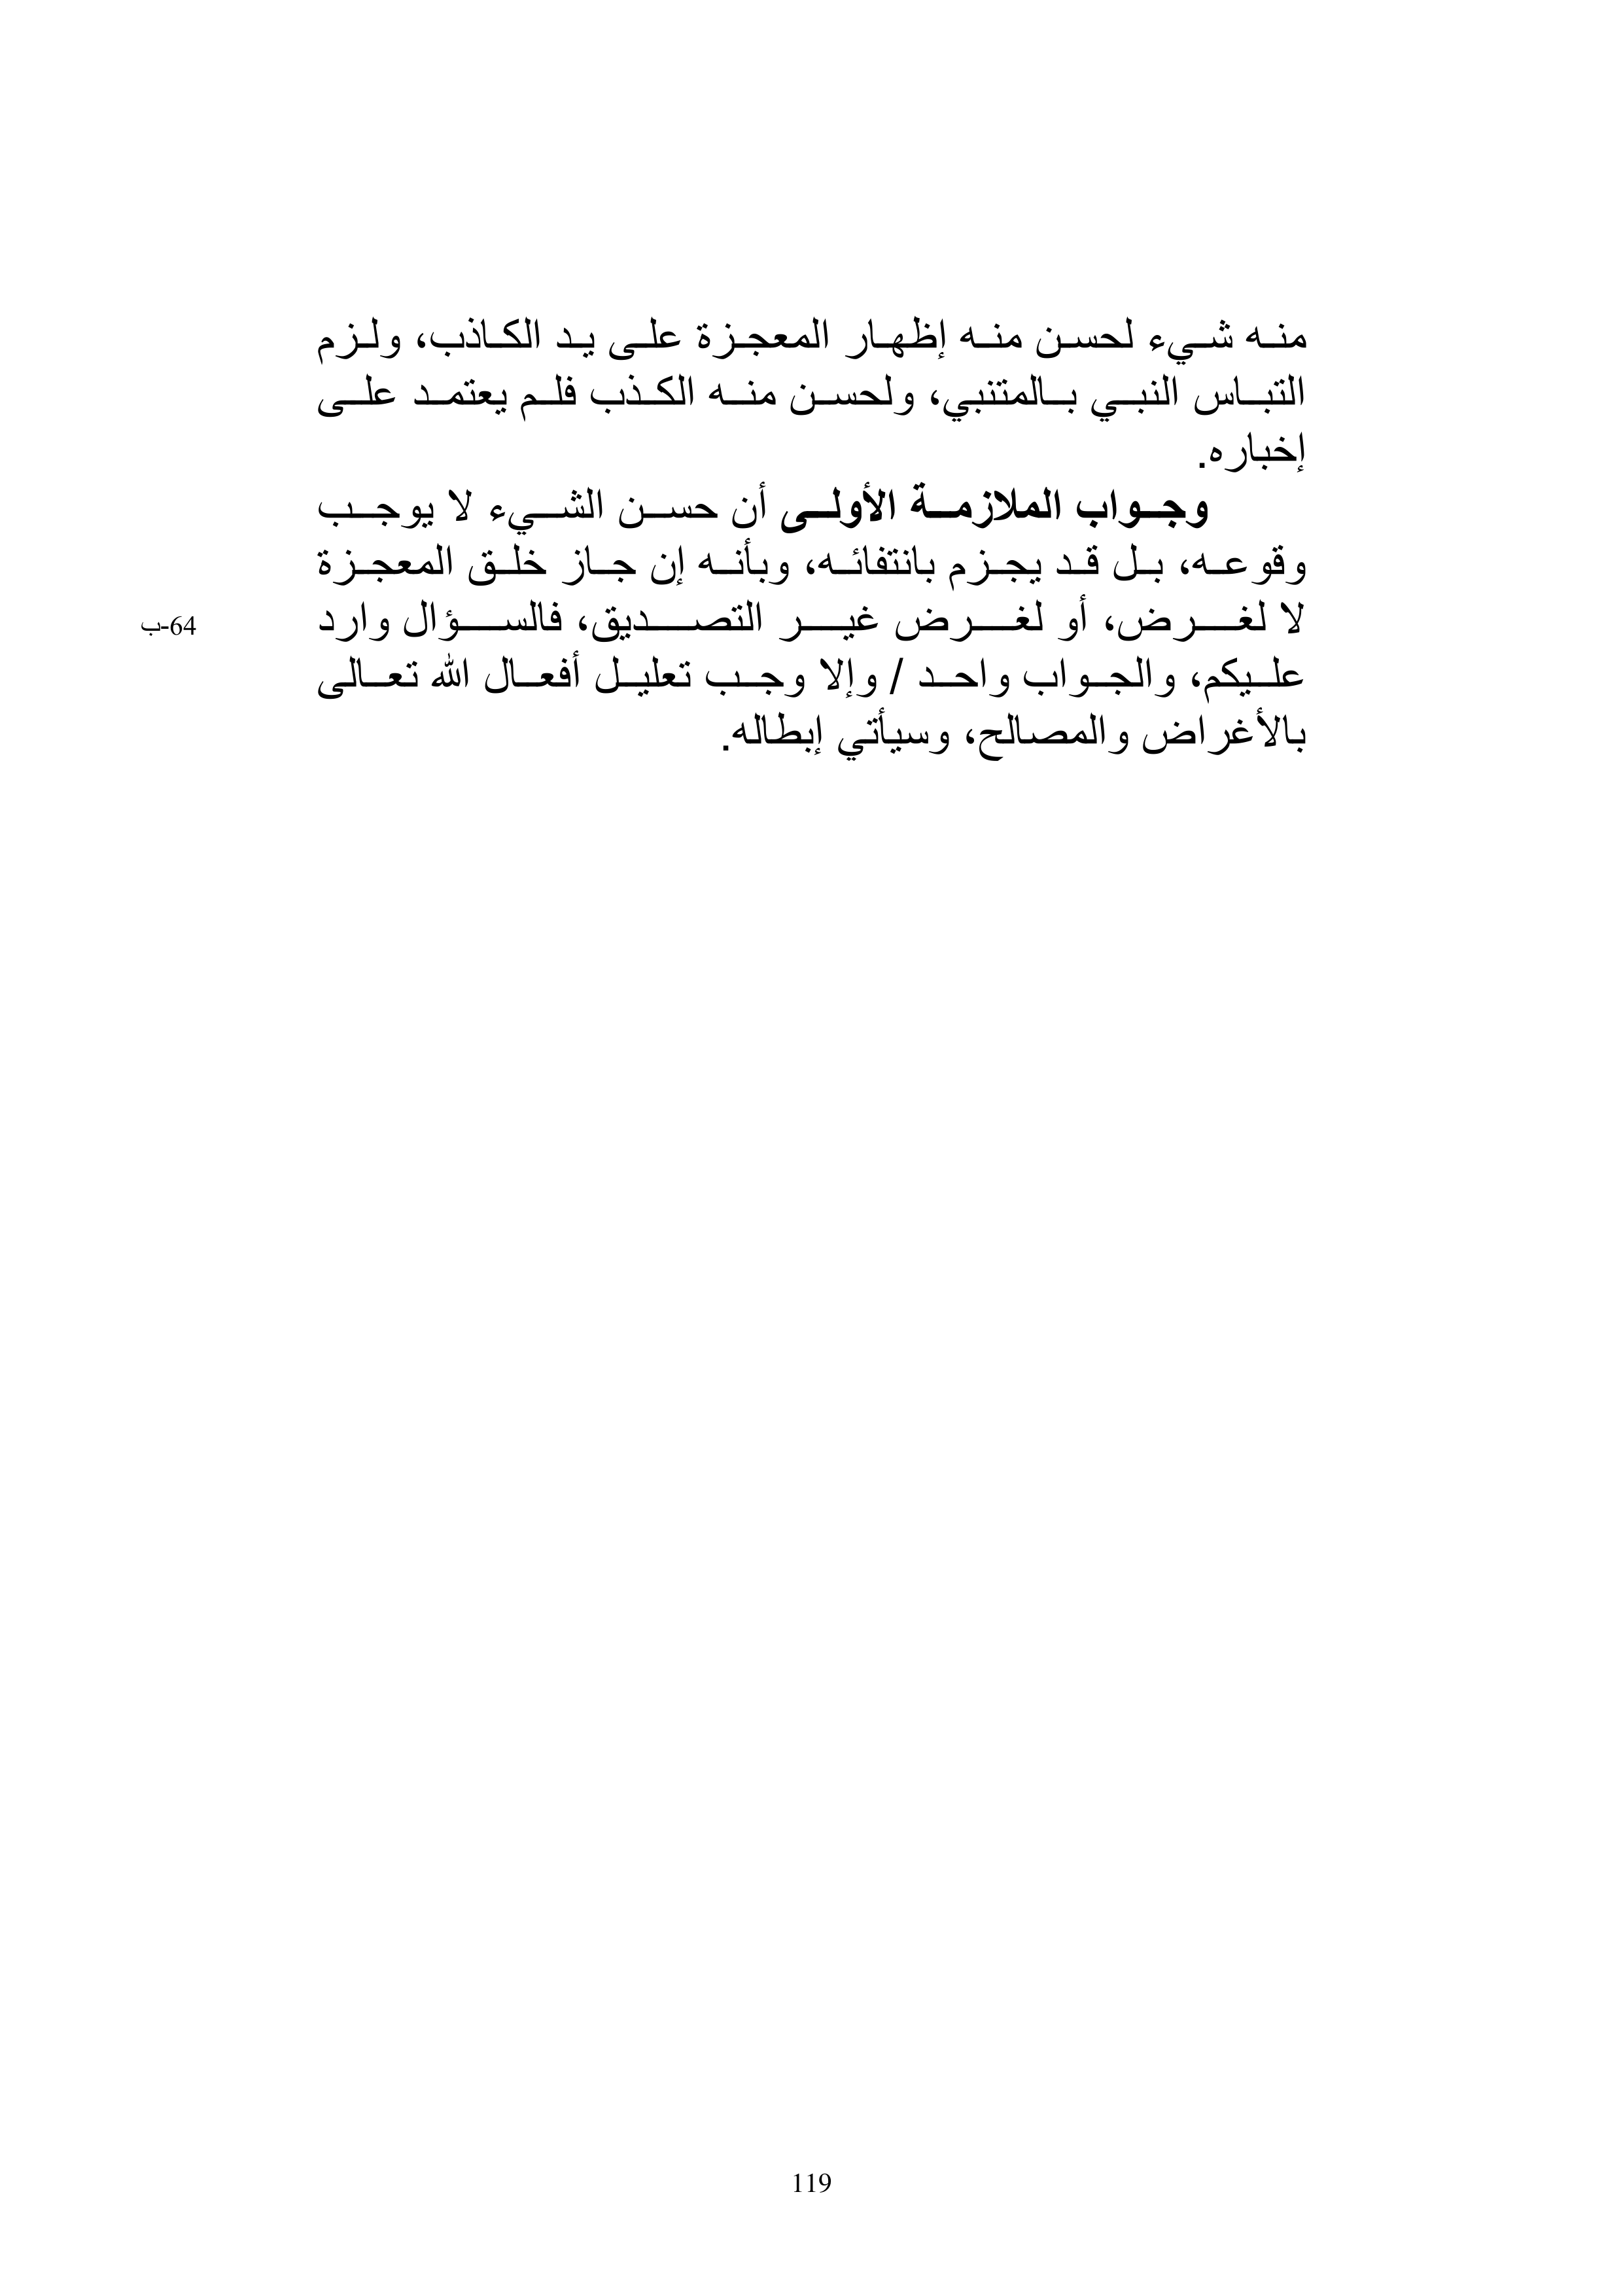 منه شيء لحسن منه إظهار المعجزة على يد الكاذب، ولزم
التباس النبي بالمتنبي، ولحسن منه الكذب فلم يعتمد على
إخباره.
وجواب الملازمة الأولى أن حسن الشيء لا يوجب
وقوعه، بل قد يجزم بانتفائه، وبأنه إن جاز خلق المعجزة
لا لغرض، أو لغرض غير التصديق، فالسؤال وارد
64-ب
عليكم، والجواب واحد / وإلا وجب تعليل أفعال الله تعالى
بالأغراض والمصالح، وسيأتي إبطاله.
119